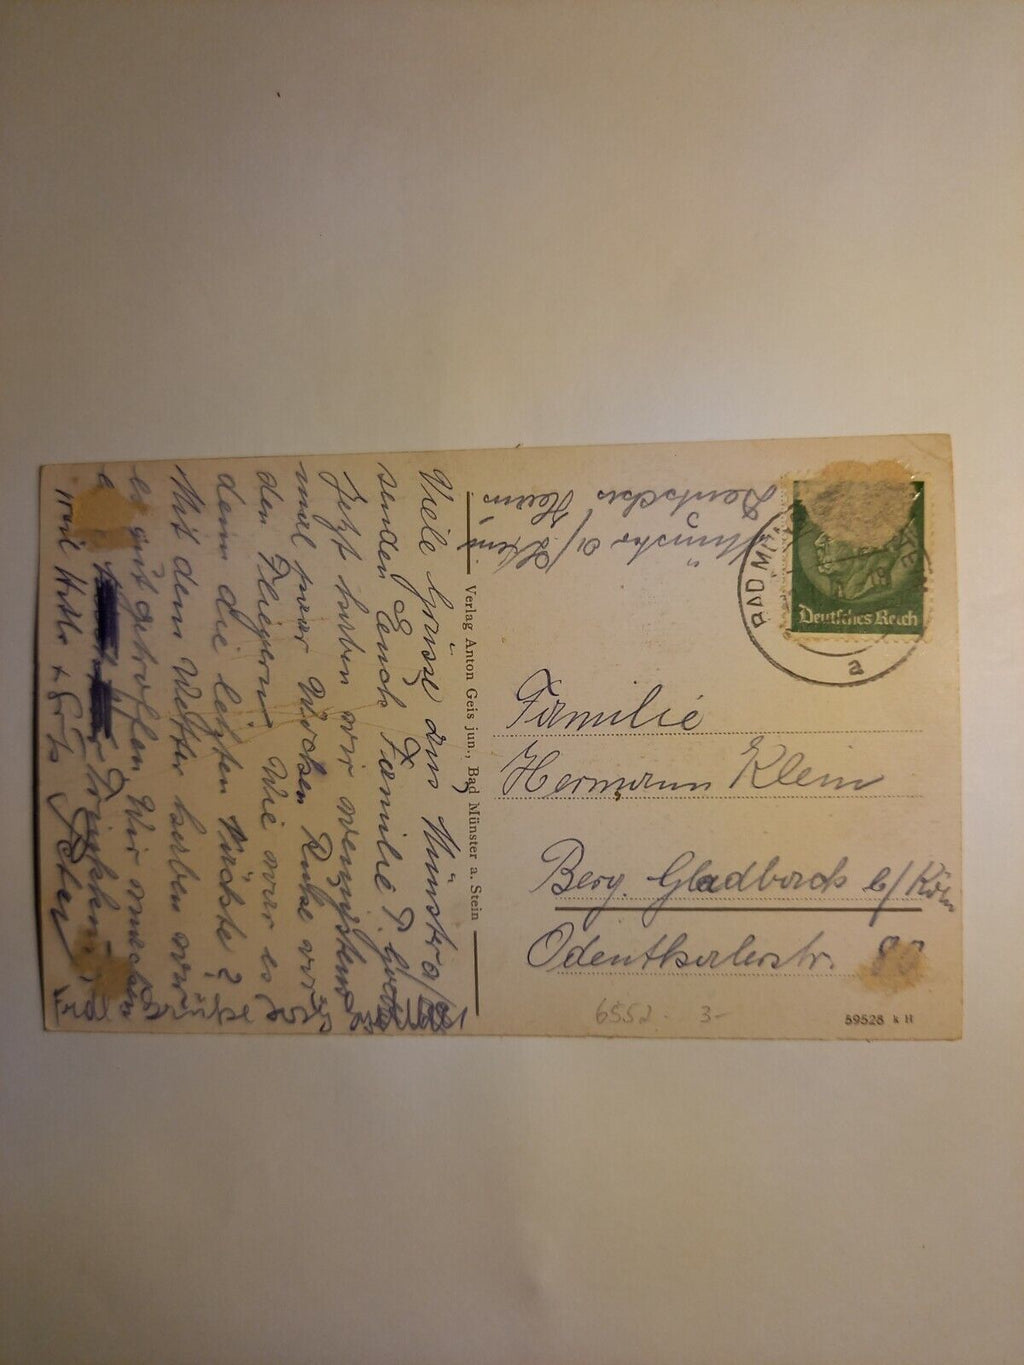 Viele Grüsse aus Münster a/
senden Euch Familie P.
Jetzt haben wir wenigstens
mal paar Wochen Ruhe vor
den Fliegern. Wie war es
denn die letzten Nächte?
Mit dem Wetter haben wir
es gut getroffen. Wir machen
und Hilde +
Verlag Anton Geis jun., Bad Münster a. Stein
Münster a/Stein
Deutsches Heim
BAD MÜN
a
Deutsches Reich
Familie
Hermann Klein
Berg. Gladbach b/Köln
Odenthalerstr. 80
6552 3-
59528 k H